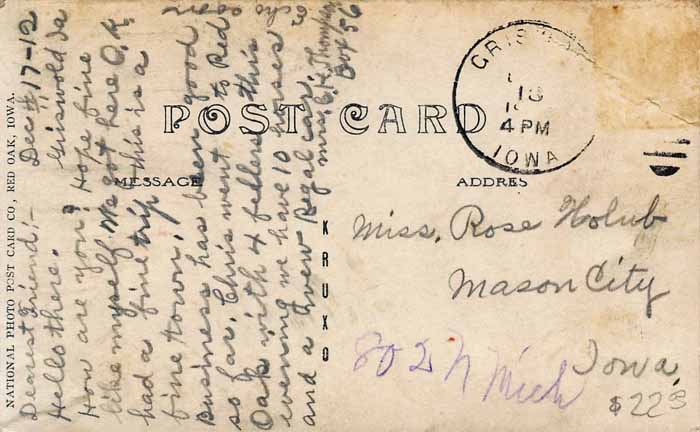 POST CARD
MESSAGE
ADDRES
KRUXO
NATIONAL PHOTO POST CARD CO., RED OAK, IOWA.
Dec #17-12
Griswold Ia
Dearest Friend:-
Hello there.
How are you? Hope fine
like myself. We got here O.K
had a fine trip this is a
fine town.
Business has been good
so far. Chris went to Red
Oak with 4 fellers this
evening we have 10 horses
and a new Regal car.
Mrs. C. H. Thompson
Box 56
18
4 PM
IOWA
Miss. Rose Holub
Mason City
Iowa.
802 N Mich
$22